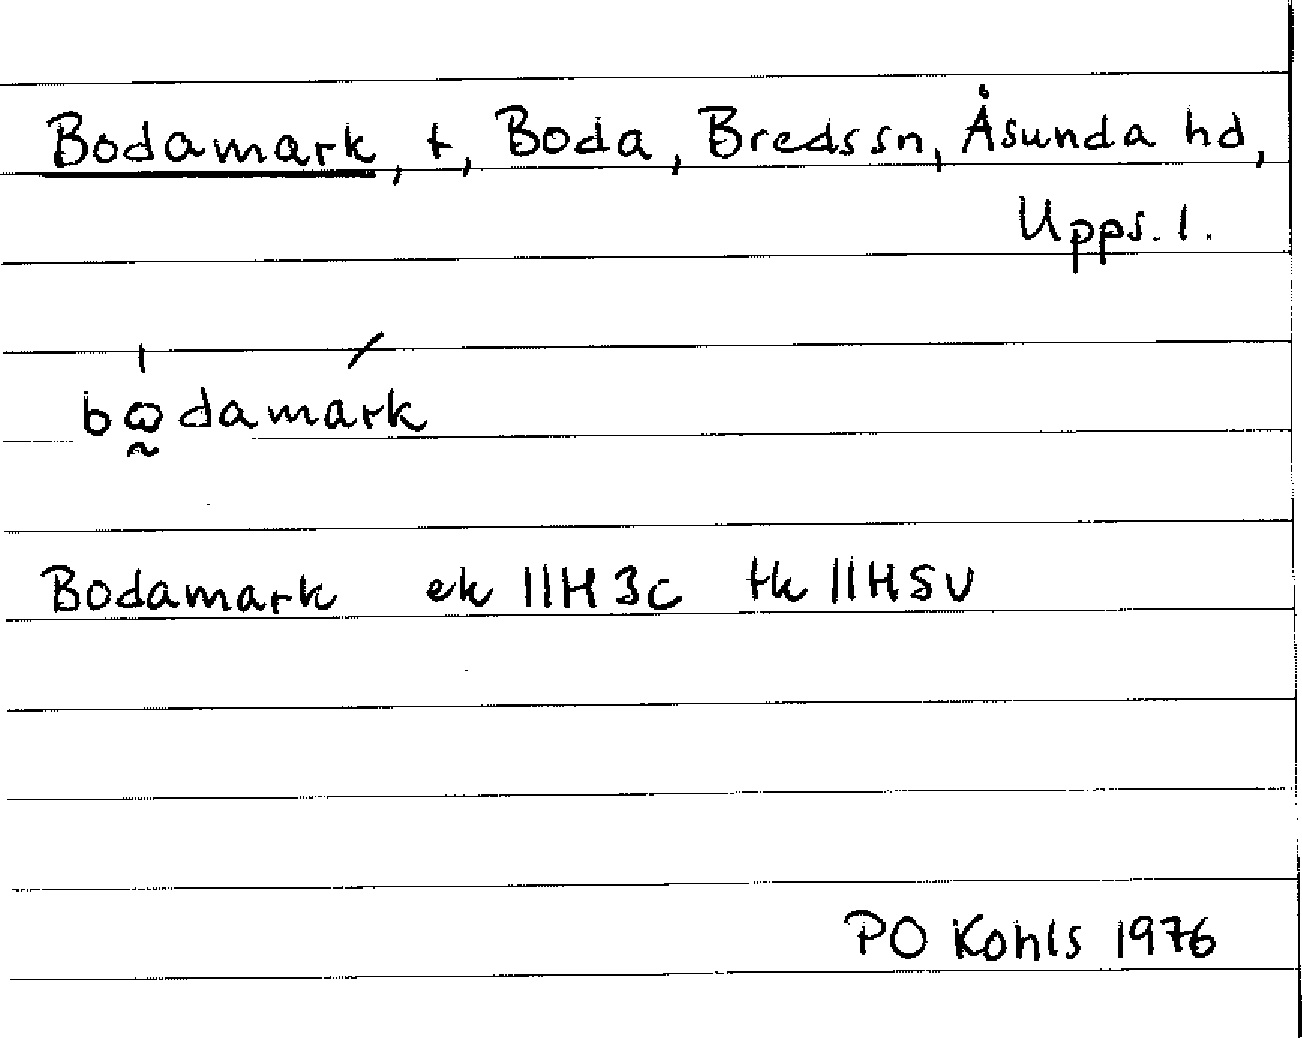 Bodamark, t, Boda, Breds sn, Åsunda hd,
Upps. l.
bωdamark
Bodamark ek 11H3c tk 11HSV
PO Kohls 1976